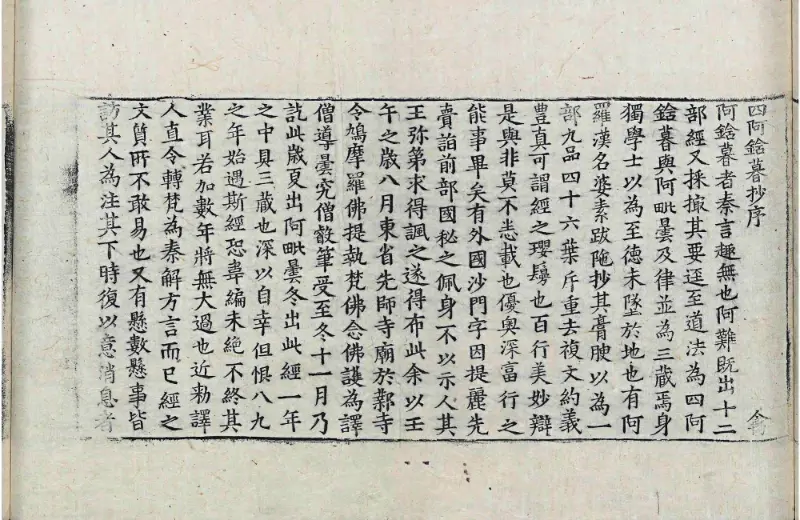 四阿鋡暮抄序
阿鋡暮者秦言趣無也阿難既出十二
部經又採撮其要逕至道法為四阿
鋡暮與阿毗曇及律並為三藏焉身
獨學士以為至德未墜於地也有阿
羅漢名婆素跋陁抄其膏腴以為一
部九品四十六葉斥重去複文約義
豊真可謂經之瓔鬘也百行美妙辯
是與非莫不悉載也優奧深富行之
能事畢矣有外國沙門字因提麗先
賷詣前部國秘之佩身不以示人其
王弥第求得諷之遂得布此余以壬
午之歲八月東省先師寺廟於鄴寺
令鳩摩羅佛提執梵佛念佛護為譯
僧導曇究僧叡筆受至冬十一月乃
訖此歲夏出阿毗曇冬出此經一年
之中具三藏也深以自幸但恨八九
之年始遇斯經恐韋編未絕不終其
業耳若加數年將無大過也近勑譯
人直令轉梵為秦解方言而已經之
文質所不敢易也又有懸數懸事皆
訪其人為注其下時復以意消息者